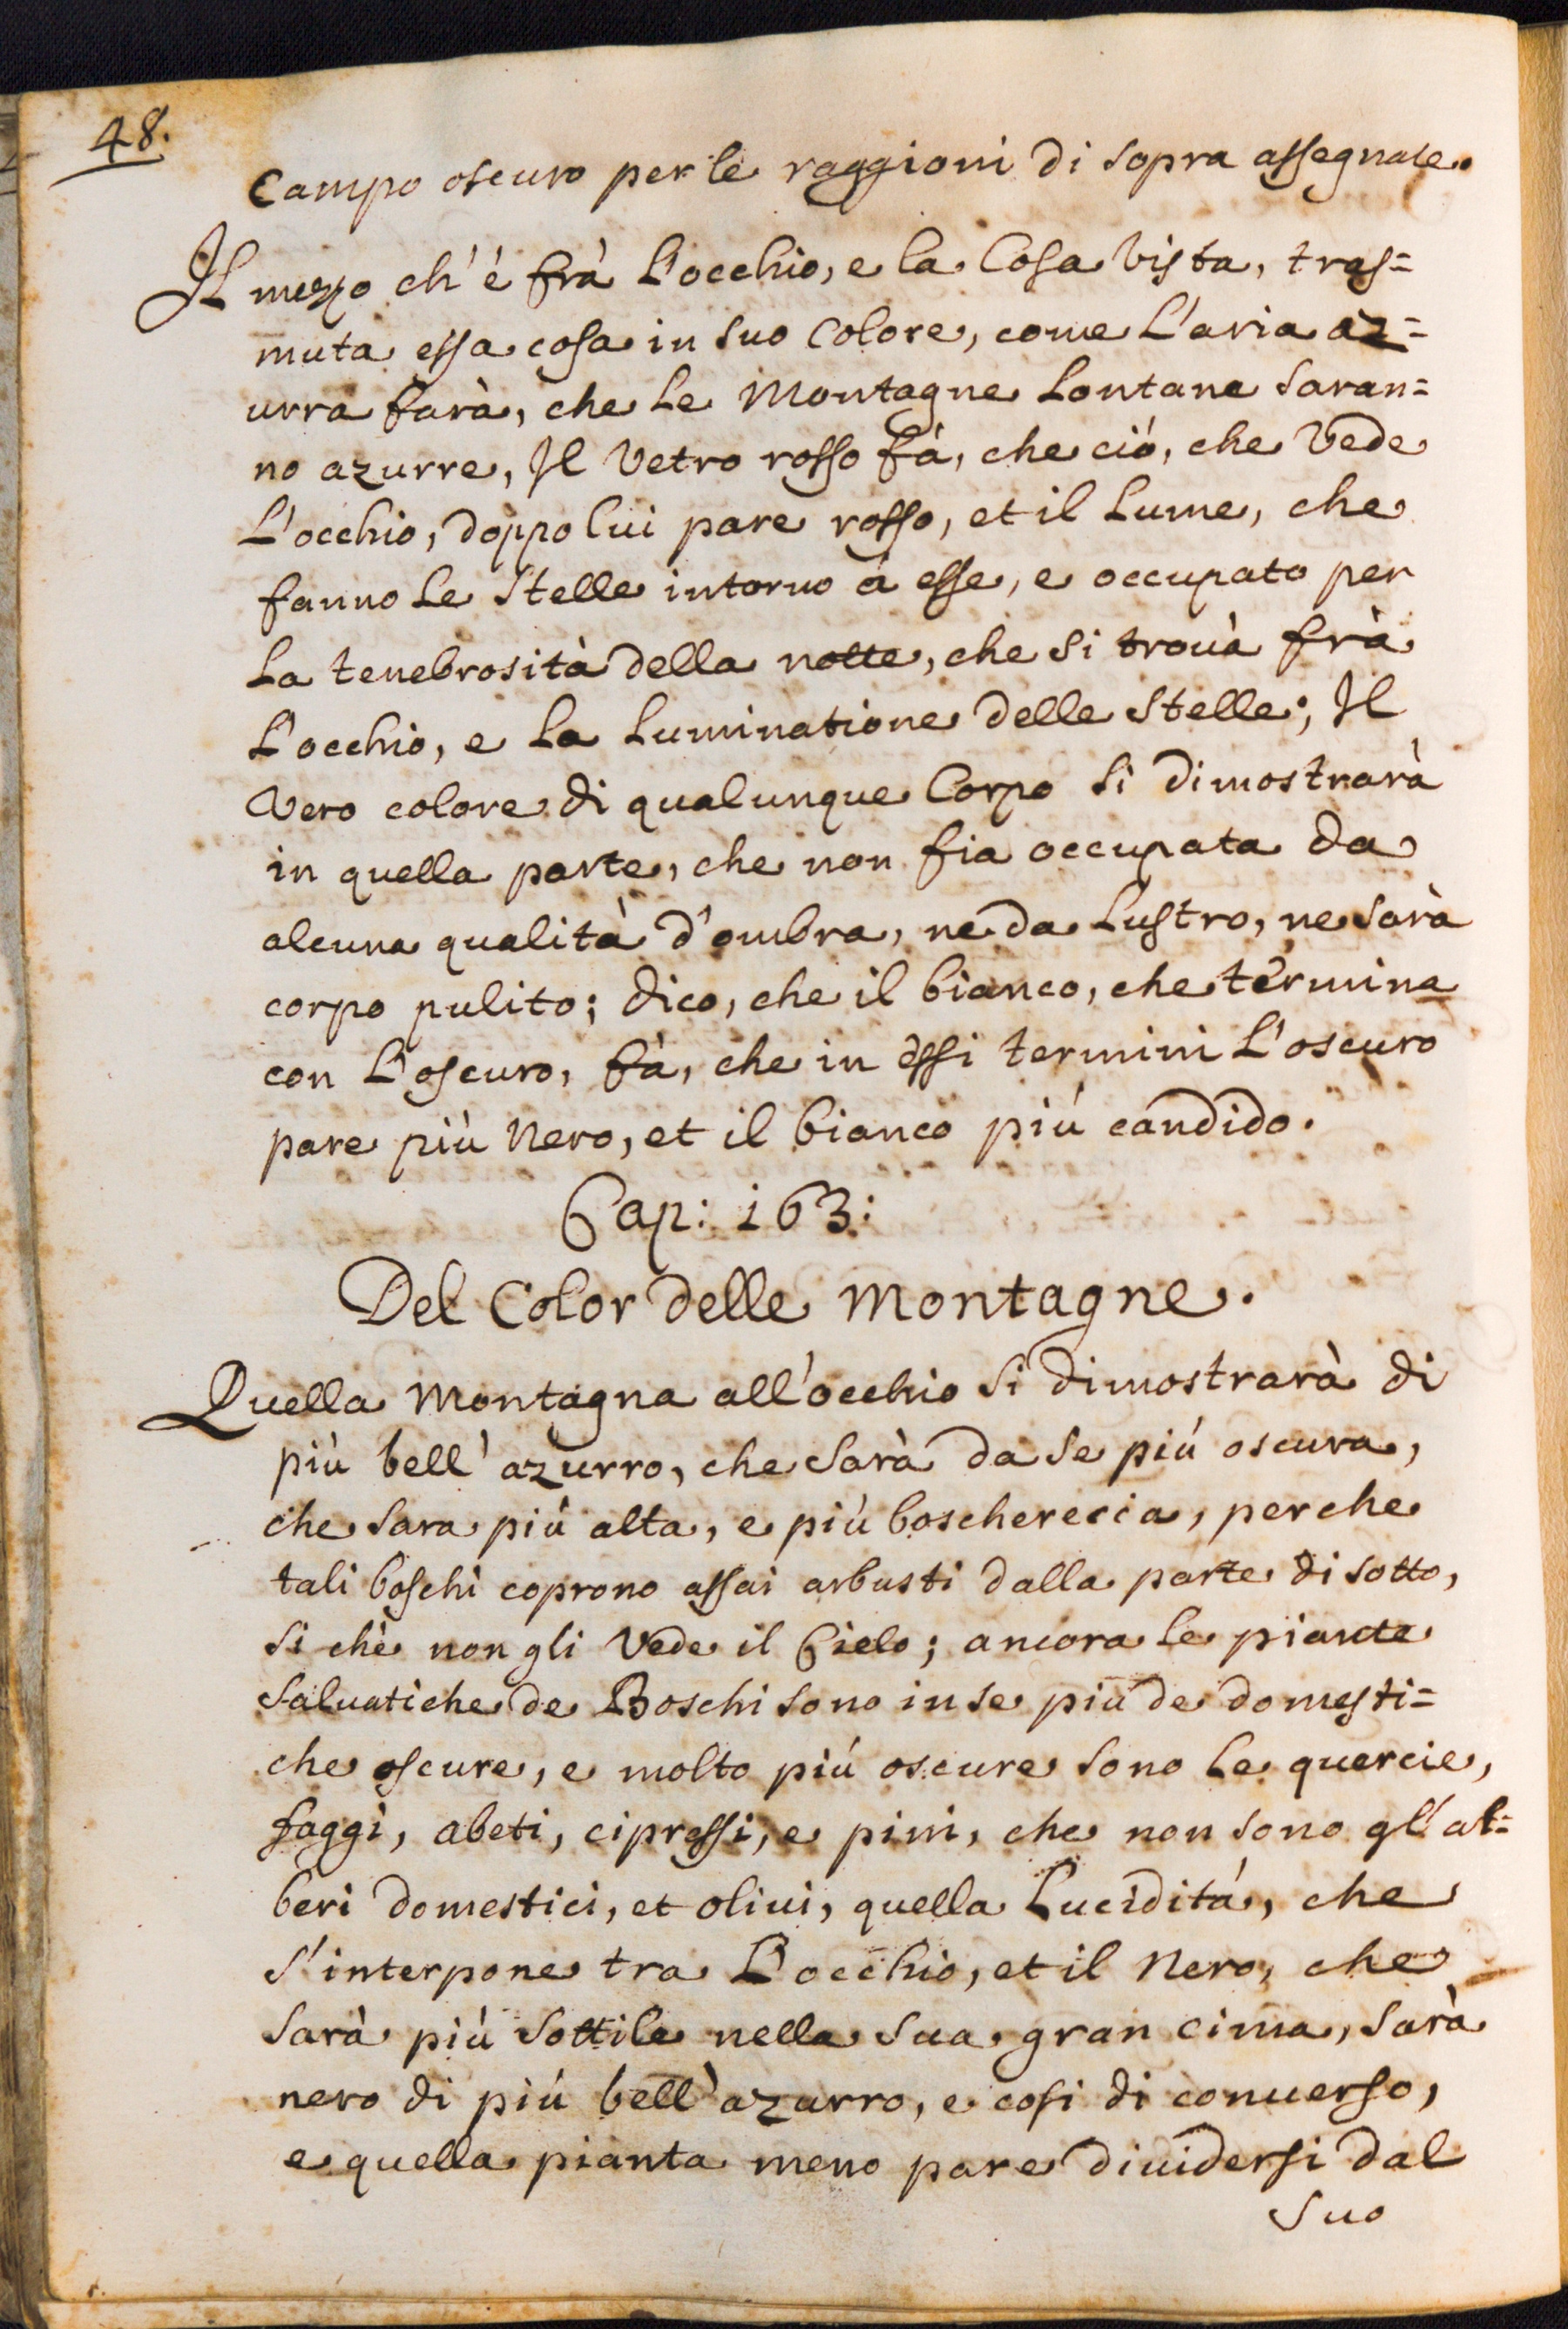 48.
Campo oscuro per le raggioni di sopra assegnate.
Il mezzo ch'è frà L'occhio, e la Cosa Vista, tras=
muta essa cosa in suo Colore, come L'aria az=
urra farà, che Le Montagne Lontane saran=
no azurre, Il Vetro rosso fà, che ciò, che Vede
L'occhio, doppo lui pare rosso, et il Lume, che
fanno Le Stelle intorno à esse, e occupato per
La tenebrosità della notte, che Si trouà frà
L'occhio, e La Luminatione delle Stelle; Il
Vero colore di qualunque Corpo Si dimostrarà
in quella parte, che non fia occupata da
alcuna qualità d'ombra, ne da Lustro, ne sarà
corpo pulito; dico, che il bianco, che términa
con L'oscuro, fà, che in essi termini L'oscuro
pare più Nero, et il bianco più candido.
Cap: 163:
Del Color delle Montagne.
Quella Montagna all'occhio Si dimostrarà di
più bell'azurro, che Sarà da Se più oscura,
che Sara più alta, e più boscherecia, perche
tali boschi coprono assai arbusti dalla parte di sotto,
Si chè non gli Vede il Cielo; ancora Le piante
Saluatiche de Boschi sono in se più de domesti=
che oscure, e molto più oscure sono Le quercie,
faggi, abeti, cipressi, e pini, che non sono gl'al=
beri domestici, et oliui, quella Lucidità, che
S'interpone tra L'occhio, et il Nero, che
Sarà più Sottile nella Sua gran cima, Sarà
nero di più bell'azurro, e cosi di conuerso,
e quella pianta meno pare diuidersi dal
Suo